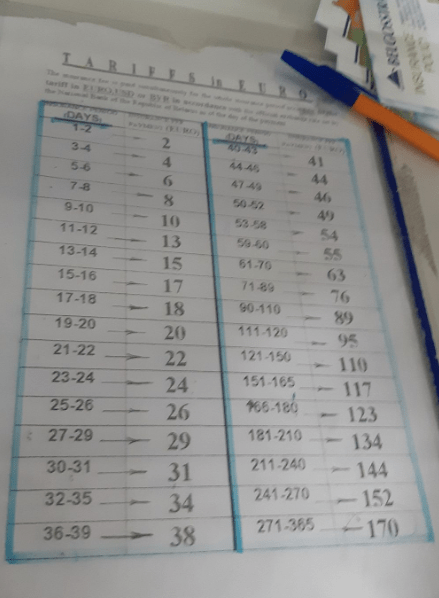 TARIFFS in EURO
The insurance fee is paid simultaneously for the whole insurance period
tariff in EURO, USD or BYR in accordance with the official exchange rate
the National Bank of the Republic of Belarus as of the day of the
(DAYS) (EURO) (DAYS) (EURO)
1-2 2 40-43 41
3-4 4 44-46 44
5-6 6 47-49 46
7-8 8 50-52 49
9-10 10 53-58 54
11-12 13 59-60 55
13-14 15 61-70 63
15-16 17 71-89 76
17-18 18 90-110 89
19-20 20 111-120 95
21-22 22 121-150 110
23-24 24 151-165 117
25-26 26 166-180 123
27-29 29 181-210 134
30-31 31 211-240 144
32-35 34 241-270 152
36-39 38 271-365 170
BELGOSSTRA
INSURANCE